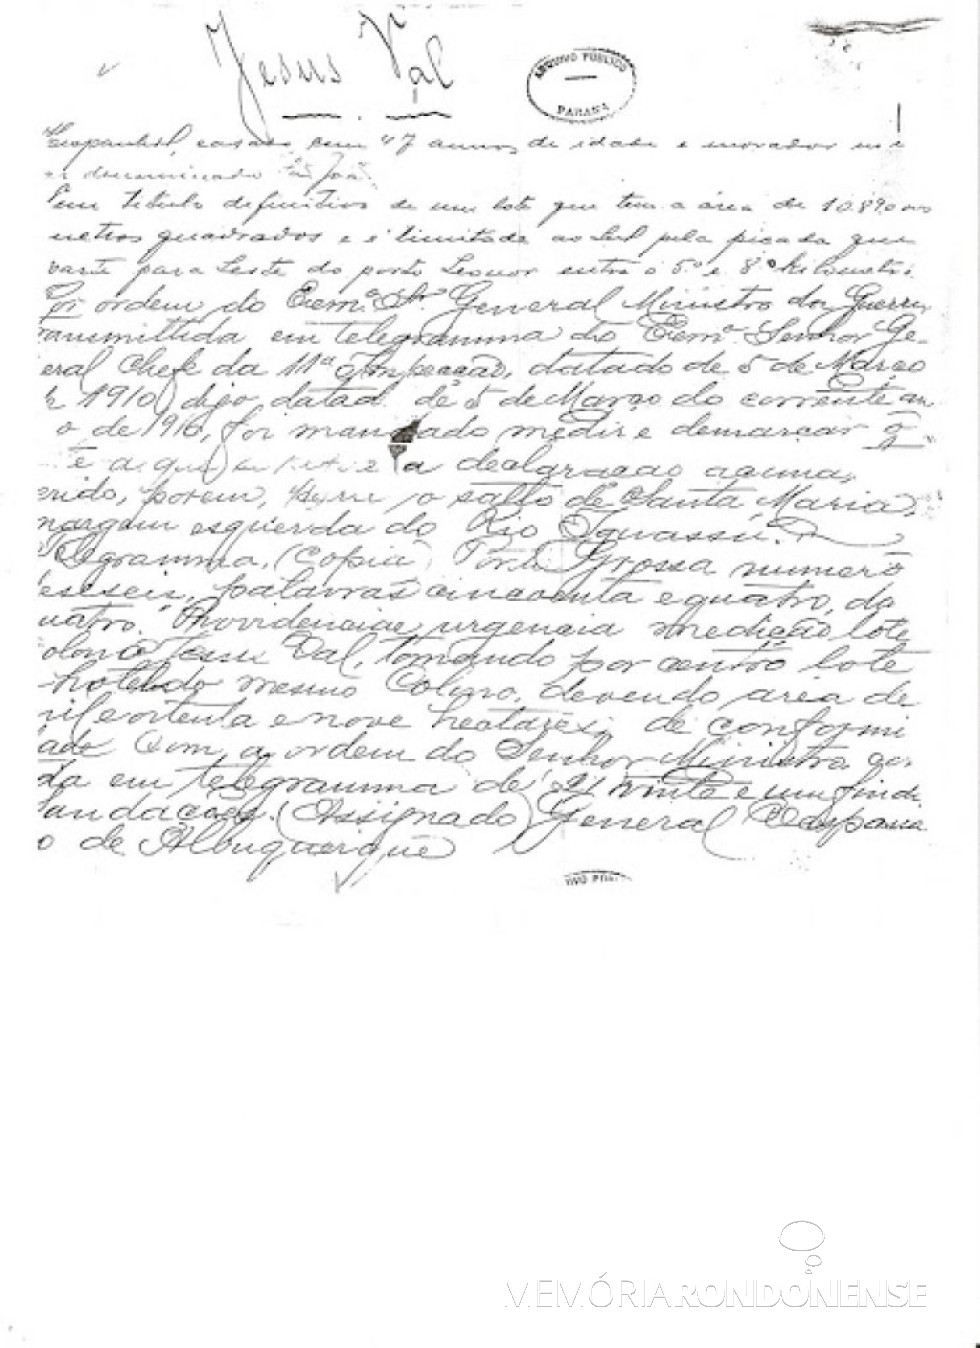 Jesus Val
ARQUIVO PÚBLICO
PARANÁ
Hespanhol, casado, com 47 annos de idade e morador
discriminado
um titulo definitivo de um lote que tem a área de 10.890.000
metros quadrados e é limitado ao Sul pela picada que
parte para Leste do porto Leonor entre o 5º e 8º kilometro.
ordem do Exmº Snr General Ministro da Guerra
ransmittida em telegramma do Exmº Senhor Ge-
eral Chefe da 11ª Inspecção, datado de 5 de Março
1910, digo, datad de 5 de Março do corrente an
o de 1910, foi mandado medir e demarcar o
é a que a declaração acima,
erido, porem, o salto de Santa Maria,
margem esquerda do Rio Iguassú.
legramma, (Copia) Ponta Grossa numero
eseseis, palavras cincoenta e quatro, dia
uatro. Providenciae urgencia medição lote
olono Jesus Val, tomando por centro lote
hotel do mesmo Colono, devendo area de
mil e oitenta e nove hectares, de conformi
dade com a ordem do Senhor Ministro
da em telegramma de 21 vinte e um findo.
audações. (Assignado) General
o de Albuquerque
IVO PÚB
MEMÓRIARONDONENSE